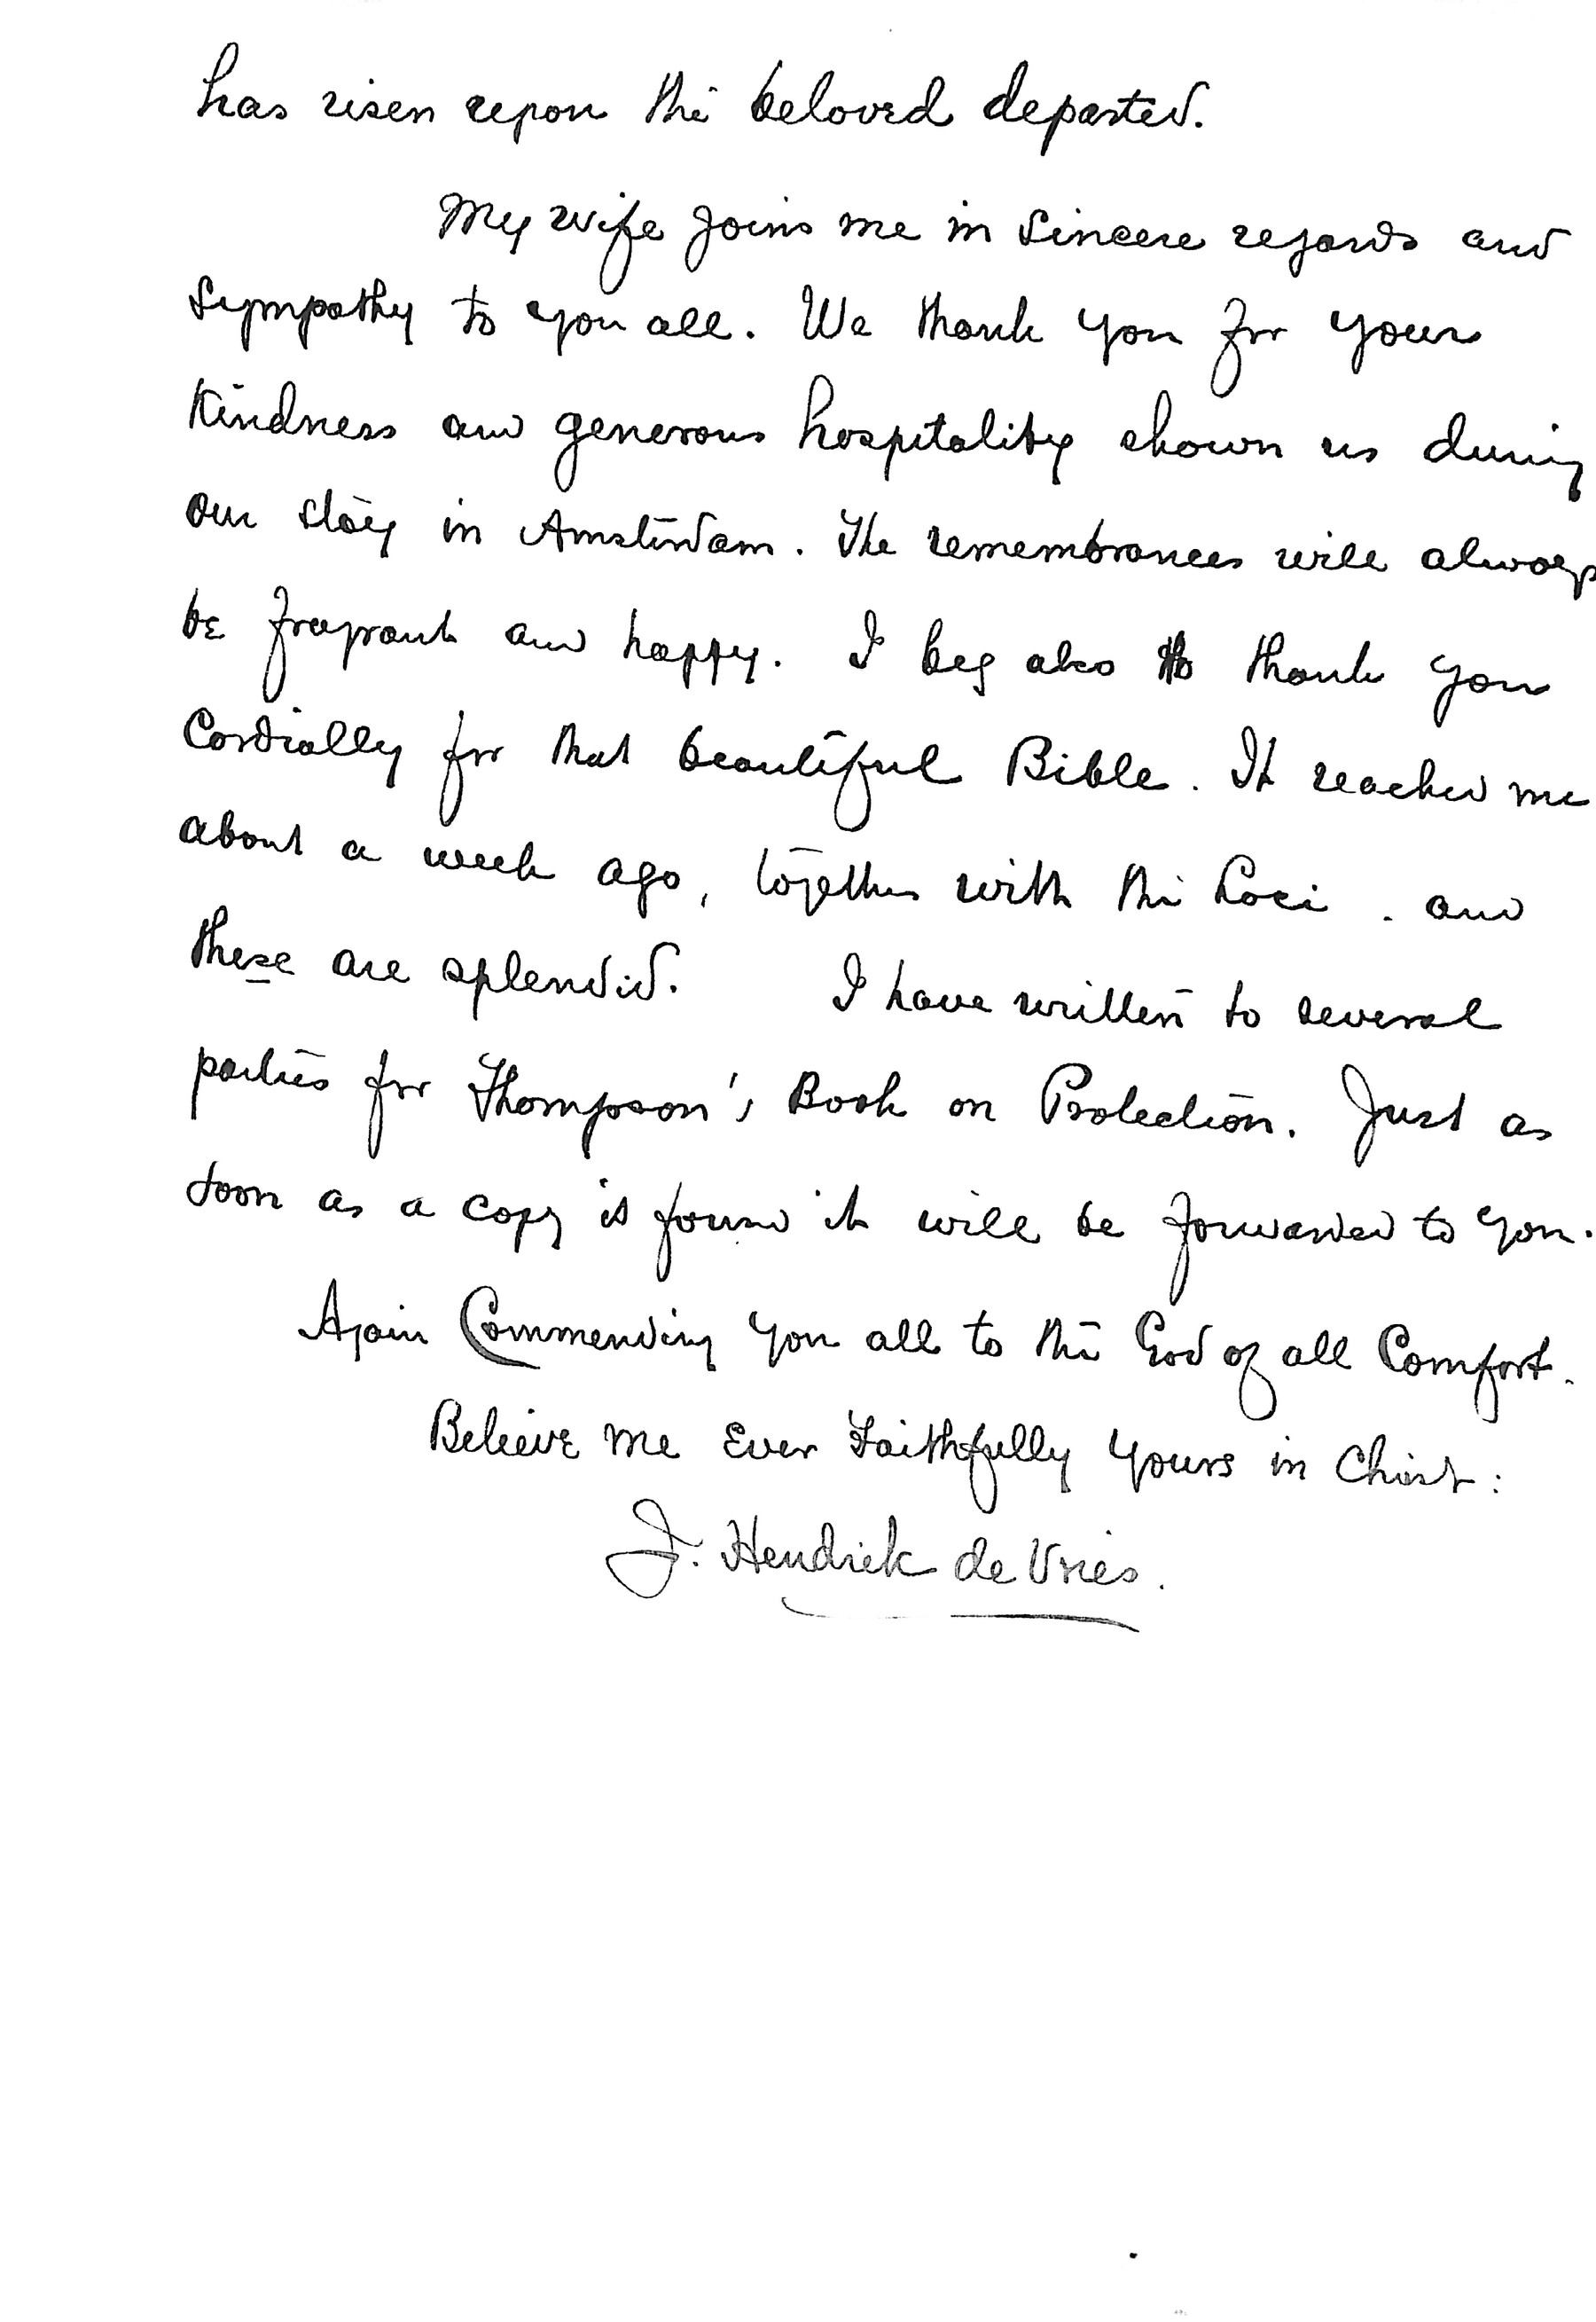 has risen upon the beloved departed.
My wife joins me in sincere regards and
sympathy to you all. We thank you for your
kindness and generous hospitality shown us during
our stay in Amsterdam. The remembrances will always
be fragrant and happy. I beg also to thank you
cordially for that beautiful Bible. It reached me
about a week ago, together with the Loci. and
these are splendid. I have written to several
parties for Thompson's Book on Protection. Just as
soon as a copy is found it will be forwarded to you.
Again Commending you all to the God of all Comfort.
Believe me Ever Faithfully Yours in Christ:
J. Hendrik de Vries.